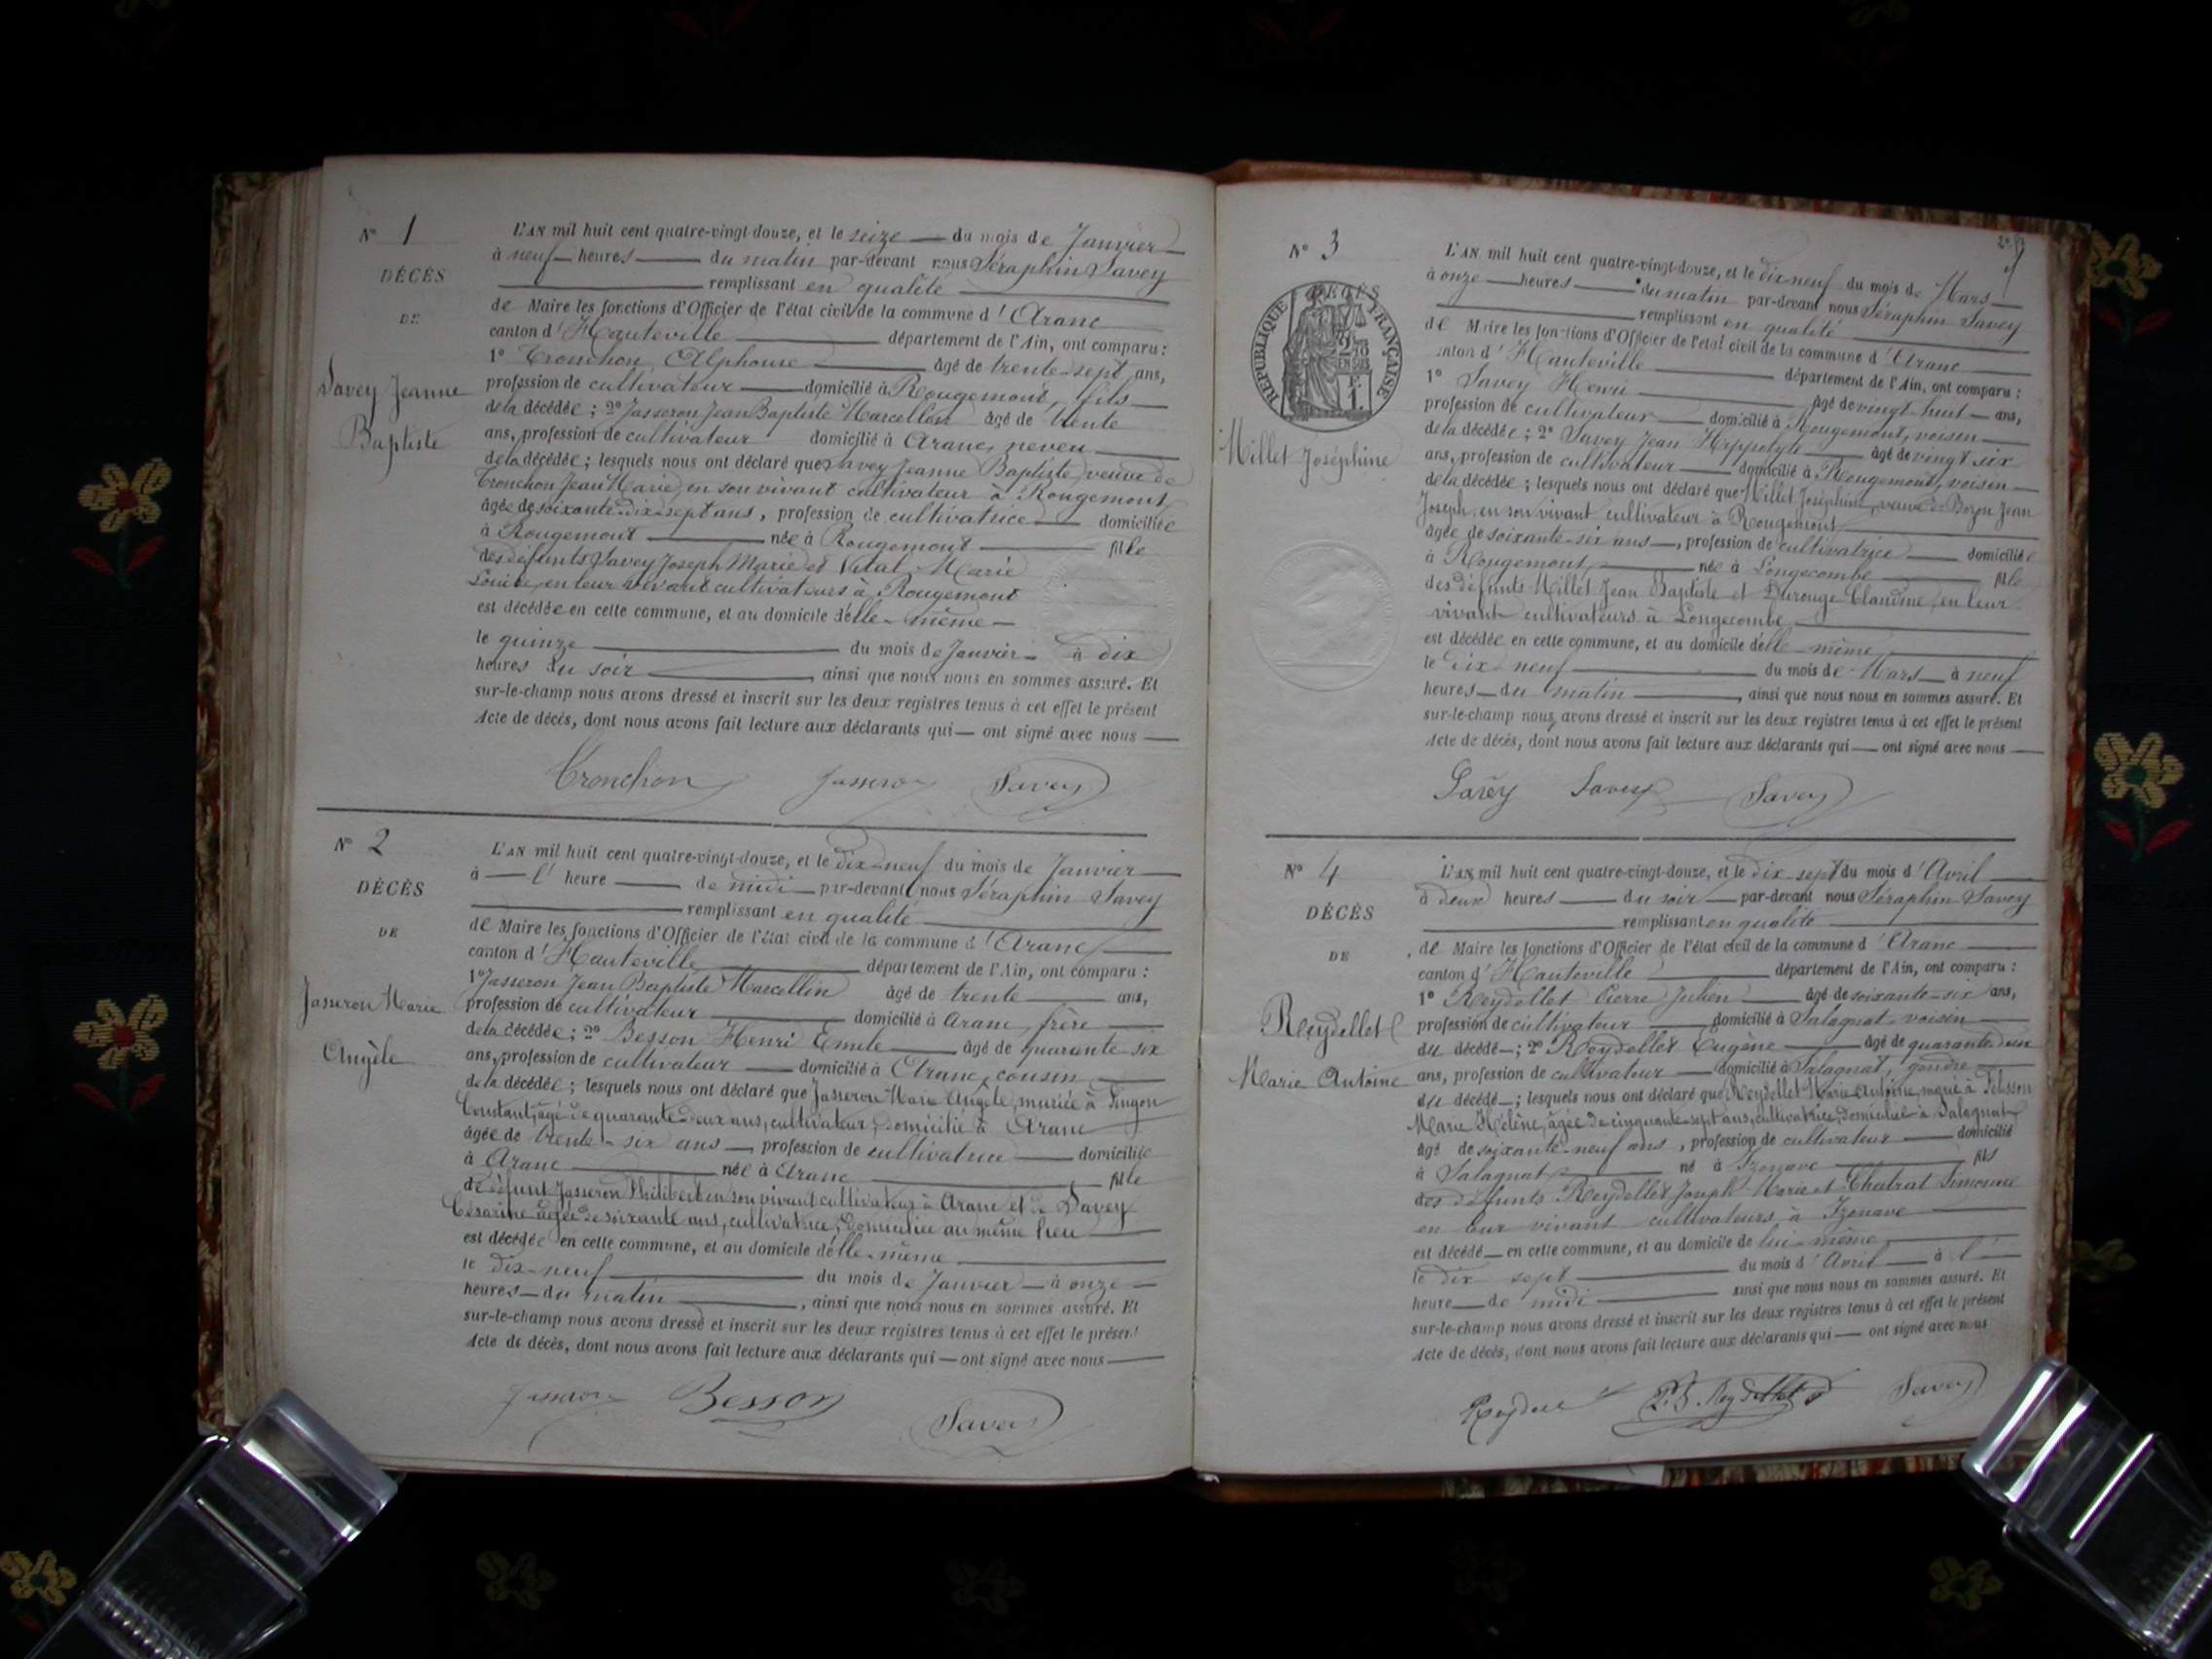 N° 1
DÉCÈS
DE
Savey Jeanne
Baptiste
L'AN mil huit cent quatre-vingt-douze, et le seize du mois de Janvier
à neuf heures du matin par-devant nous Séraphin Savey
remplissant en qualité
de Maire les fonctions d'Officier de l'état civil de la commune d'Aranc
canton d'Hauteville département de l'Ain, ont comparu :
1° Tronchon Alphonse âgé de trente-sept ans,
profession de cultivateur domicilié à Rougemont, fils
de la décédée ; 2° Jasseron Jean Baptiste Marcellin âgé de trente
ans, profession de cultivateur domicilié à Aranc, neveu
de la décédée ; lesquels nous ont déclaré que Savey Jeanne Baptiste, veuve de
Tronchon Jean Marie, en son vivant cultivateur à Rougemont
âgée de soixante-dix-sept ans, profession de cultivatrice domiciliée
à Rougemont née à Rougemont fille
des défunts Savey Joseph Marie et Vital Marie
Louise, en leur vivant cultivateurs à Rougemont
est décédée en cette commune, et au domicile d'elle-même
le quinze du mois de Janvier à dix
heures du soir, ainsi que nous nous en sommes assuré. Et
sur-le-champ nous avons dressé et inscrit sur les deux registres tenus à cet effet le présent
Acte de décès, dont nous avons fait lecture aux déclarants qui ont signé avec nous
Tronchon Jasseron Savey
N° 2
DÉCÈS
DE
Jasseron Marie
Angèle
L'AN mil huit cent quatre-vingt-douze, et le dix-neuf du mois de Janvier
à l'heure de midi par-devant nous Séraphin Savey
remplissant en qualité
de Maire les fonctions d'Officier de l'état civil de la commune d'Aranc
canton d'Hauteville département de l'Ain, ont comparu :
1° Jasseron Jean Baptiste Marcellin âgé de trente ans,
profession de cultivateur domicilié à Aranc, frère
de la décédée ; 2° Besson Henri Emile âgé de quarante-six
ans, profession de cultivateur domicilié à Aranc, cousin
de la décédée ; lesquels nous ont déclaré que Jasseron Marie Angèle, mariée à
Constant, âgé de quarante-deux ans, cultivateur, domicilié à Aranc
âgée de trente-six ans, profession de cultivatrice domiciliée
à Aranc née à Aranc fille
de défunt Jasseron Philibert en son vivant cultivateur à Aranc et de Savey
Césarine âgée de soixante ans, cultivatrice, domiciliée au même lieu
est décédée en cette commune, et au domicile d'elle-même
le dix-neuf du mois de Janvier à onze
heures du matin, ainsi que nous nous en sommes assuré. Et
sur-le-champ nous avons dressé et inscrit sur les deux registres tenus à cet effet le présent
Acte de décès, dont nous avons fait lecture aux déclarants qui ont signé avec nous
Jasseron Besson Savey
N° 3
RÉPUBLIQUE FRANÇAISE
2/10 EN SUS
F. 1.
Millet Joséphine
L'AN mil huit cent quatre-vingt-douze, et le dix-neuf du mois de Mars
à onze heures du matin par-devant nous Séraphin Savey
remplissant en qualité
de Maire les fonctions d'Officier de l'état civil de la commune d'Aranc
canton d'Hauteville département de l'Ain, ont comparu :
1° Savey Henri âgé de vingt-huit ans,
profession de cultivateur domicilié à Rougemont, voisin
de la décédée ; 2° Savey Jean Hippolyte âgé de vingt six
ans, profession de cultivateur domicilié à Rougemont, voisin
de la décédée ; lesquels nous ont déclaré que Millet Joséphine, veuve de Bozon Jean
Joseph, en son vivant cultivateur à Rougemont
âgée de soixante-six ans, profession de cultivatrice domiciliée
à Rougemont née à Longecombe fille
des défunts Millet Jean Baptiste et Durouge Claudine, en leur
vivant cultivateurs à Longecombe
est décédée en cette commune, et au domicile d'elle-même
le dix-neuf du mois de Mars à neuf
heures du matin, ainsi que nous nous en sommes assuré. Et
sur-le-champ nous avons dressé et inscrit sur les deux registres tenus à cet effet le présent
Acte de décès, dont nous avons fait lecture aux déclarants qui ont signé avec nous
Savey Savey Savey
N° 4
DÉCÈS
DE
Reydellet
Marie Antoine
L'AN mil huit cent quatre-vingt-douze, et le dix-sept du mois d'Avril
à deux heures du soir par-devant nous Séraphin Savey
remplissant en qualité
de Maire les fonctions d'Officier de l'état civil de la commune d'Aranc
canton d'Hauteville département de l'Ain, ont comparu :
1° Reydellet Pierre Julien âgé de soixante-six ans,
profession de cultivateur domicilié à Salagnat, voisin
du décédé ; 2° Reydellet Eugène âgé de quarante-deux
ans, profession de cultivateur domicilié à Salagnat, gendre
du décédé ; lesquels nous ont déclaré que Reydellet Marie Antoine, marié à
Marie Hélène, âgée de cinquante-sept ans, cultivatrice, domiciliée à Salagnat
âgé de soixante-neuf ans, profession de cultivateur domicilié
à Salagnat né à Izenave fils
des défunts Reydellet Joseph Marie et Chatrat Simonne
en leur vivant cultivateurs à Izenave
est décédé en cette commune, et au domicile de lui-même
le dix-sept du mois d'Avril à l'
heure de midi ainsi que nous nous en sommes assuré. Et
sur-le-champ nous avons dressé et inscrit sur les deux registres tenus à cet effet le présent
Acte de décès, dont nous avons fait lecture aux déclarants qui ont signé avec nous
Reydellet Savey